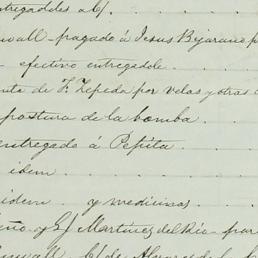 ntregaddes a C/.
wall - pagado á Jesus Bejarano p
efectivo entregadole
nta de F. Zepeda por velas y otras c
postura de la bomba
entregado á Pepita
idem
idem y medicinas
eño y S/ Martinez del Rio - par